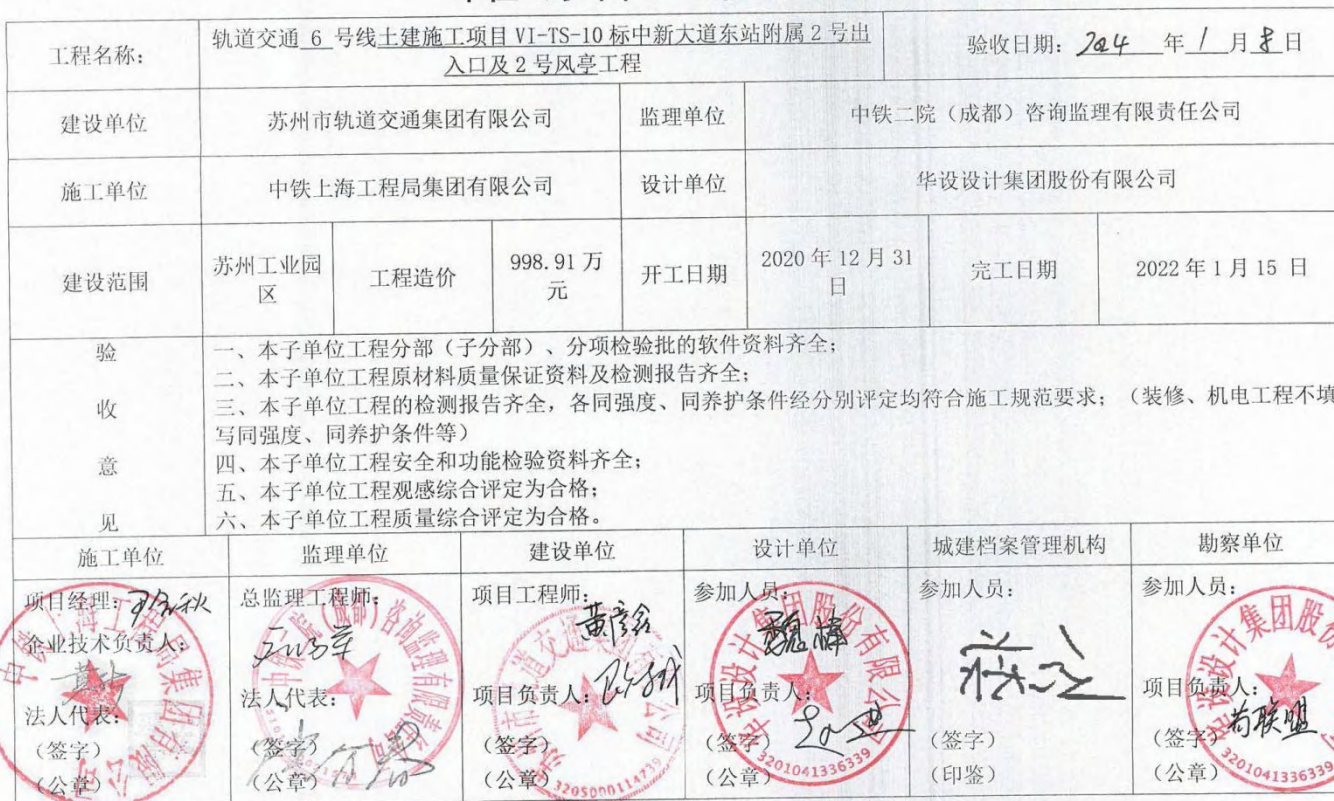 工程名称：
轨道交通 6 号线土建施工项目 VI-TS-10 标中新大道东站附属 2 号出
入口及 2 号风亭工程
验收日期：2024 年 1 月 8 日
建设单位
苏州市轨道交通集团有限公司
监理单位
中铁二院（成都）咨询监理有限责任公司
施工单位
中铁上海工程局集团有限公司
设计单位
华设设计集团股份有限公司
建设范围
苏州工业园
区
工程造价
998.91 万
元
开工日期
2020 年 12 月 31
日
完工日期
2022 年 1 月 15 日
验
收
意
见
一、本子单位工程分部（子分部）、分项检验批的软件资料齐全；
二、本子单位工程原材料质量保证资料及检测报告齐全；
三、本子单位工程的检测报告齐全，各同强度、同养护条件经分别评定均符合施工规范要求；（装修、机电工程不填
写同强度、同养护条件等）
四、本子单位工程安全和功能检验资料齐全；
五、本子单位工程观感综合评定为合格；
六、本子单位工程质量综合评定为合格。
施工单位
监理单位
建设单位
设计单位
城建档案管理机构
勘察单位
项目经理：
企业技术负责人：
法人代表：
（签字）
（公章）
总监理工程师：
法人代表：
（签字）
（公章）
项目工程师：
黄彦鑫
项目负责人：
（签字）
（公章）
3205000114739
参加人员：
魏巍
项目负责人：
（签字）
（公章）
华设设计集团股份有限公司
3201041336339
参加人员：
（签字）
（印鉴）
参加人员：
项目负责人：
苟联盟
（签字）
（公章）
3201041336339